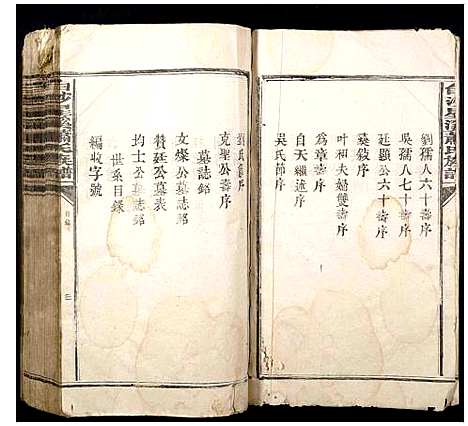 劉孺人六十壽序
吳孺人七十壽序
廷顯公六十壽序
叢敘序
叶和夫婦雙壽序
為章壽序
自天繼述序
吳氏節序
氏節序
克聖公壽序
墓誌銘
女燦公墓志銘
贊廷公墓表
均士公墓志銘
世系目録
編收字號
蕭氏族譜